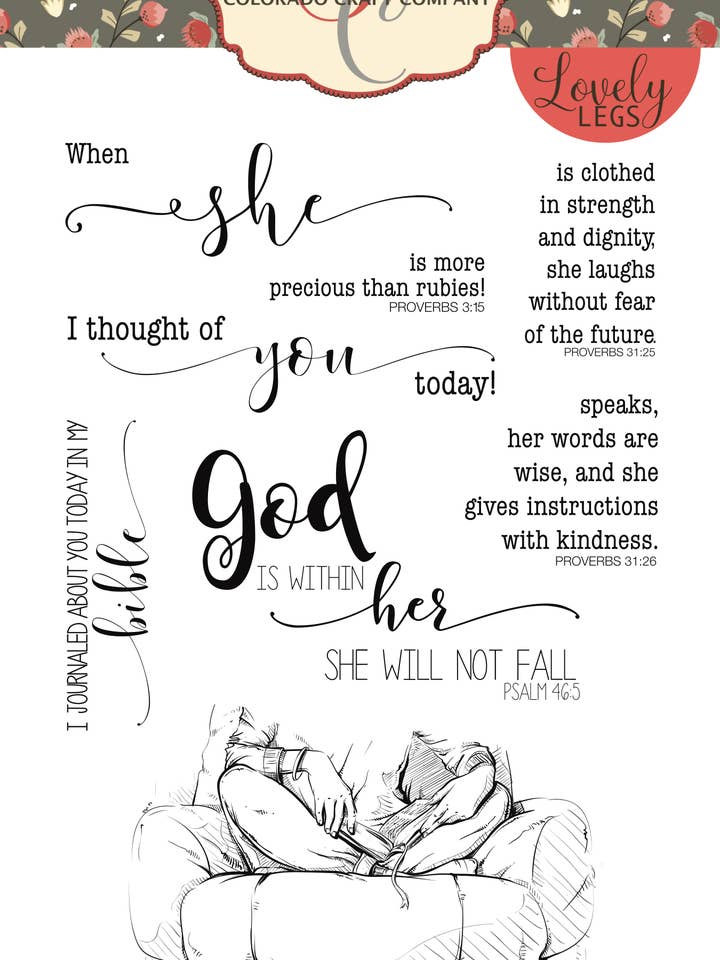 COLORADO CRAFT COMPANY
C
Lovely
LEGS
When
she
is more
precious than rubies!
PROVERBS 3:15
is clothed
in strength
and dignity,
she laughs
without fear
of the future.
PROVERBS 31:25
I thought of
you
today!
speaks,
her words are
wise, and she
gives instructions
with kindness.
PROVERBS 31:26
I JOURNALED ABOUT YOU TODAY IN MY
bible
god
IS WITHIN
her
SHE WILL NOT FALL
PSALM 46:5